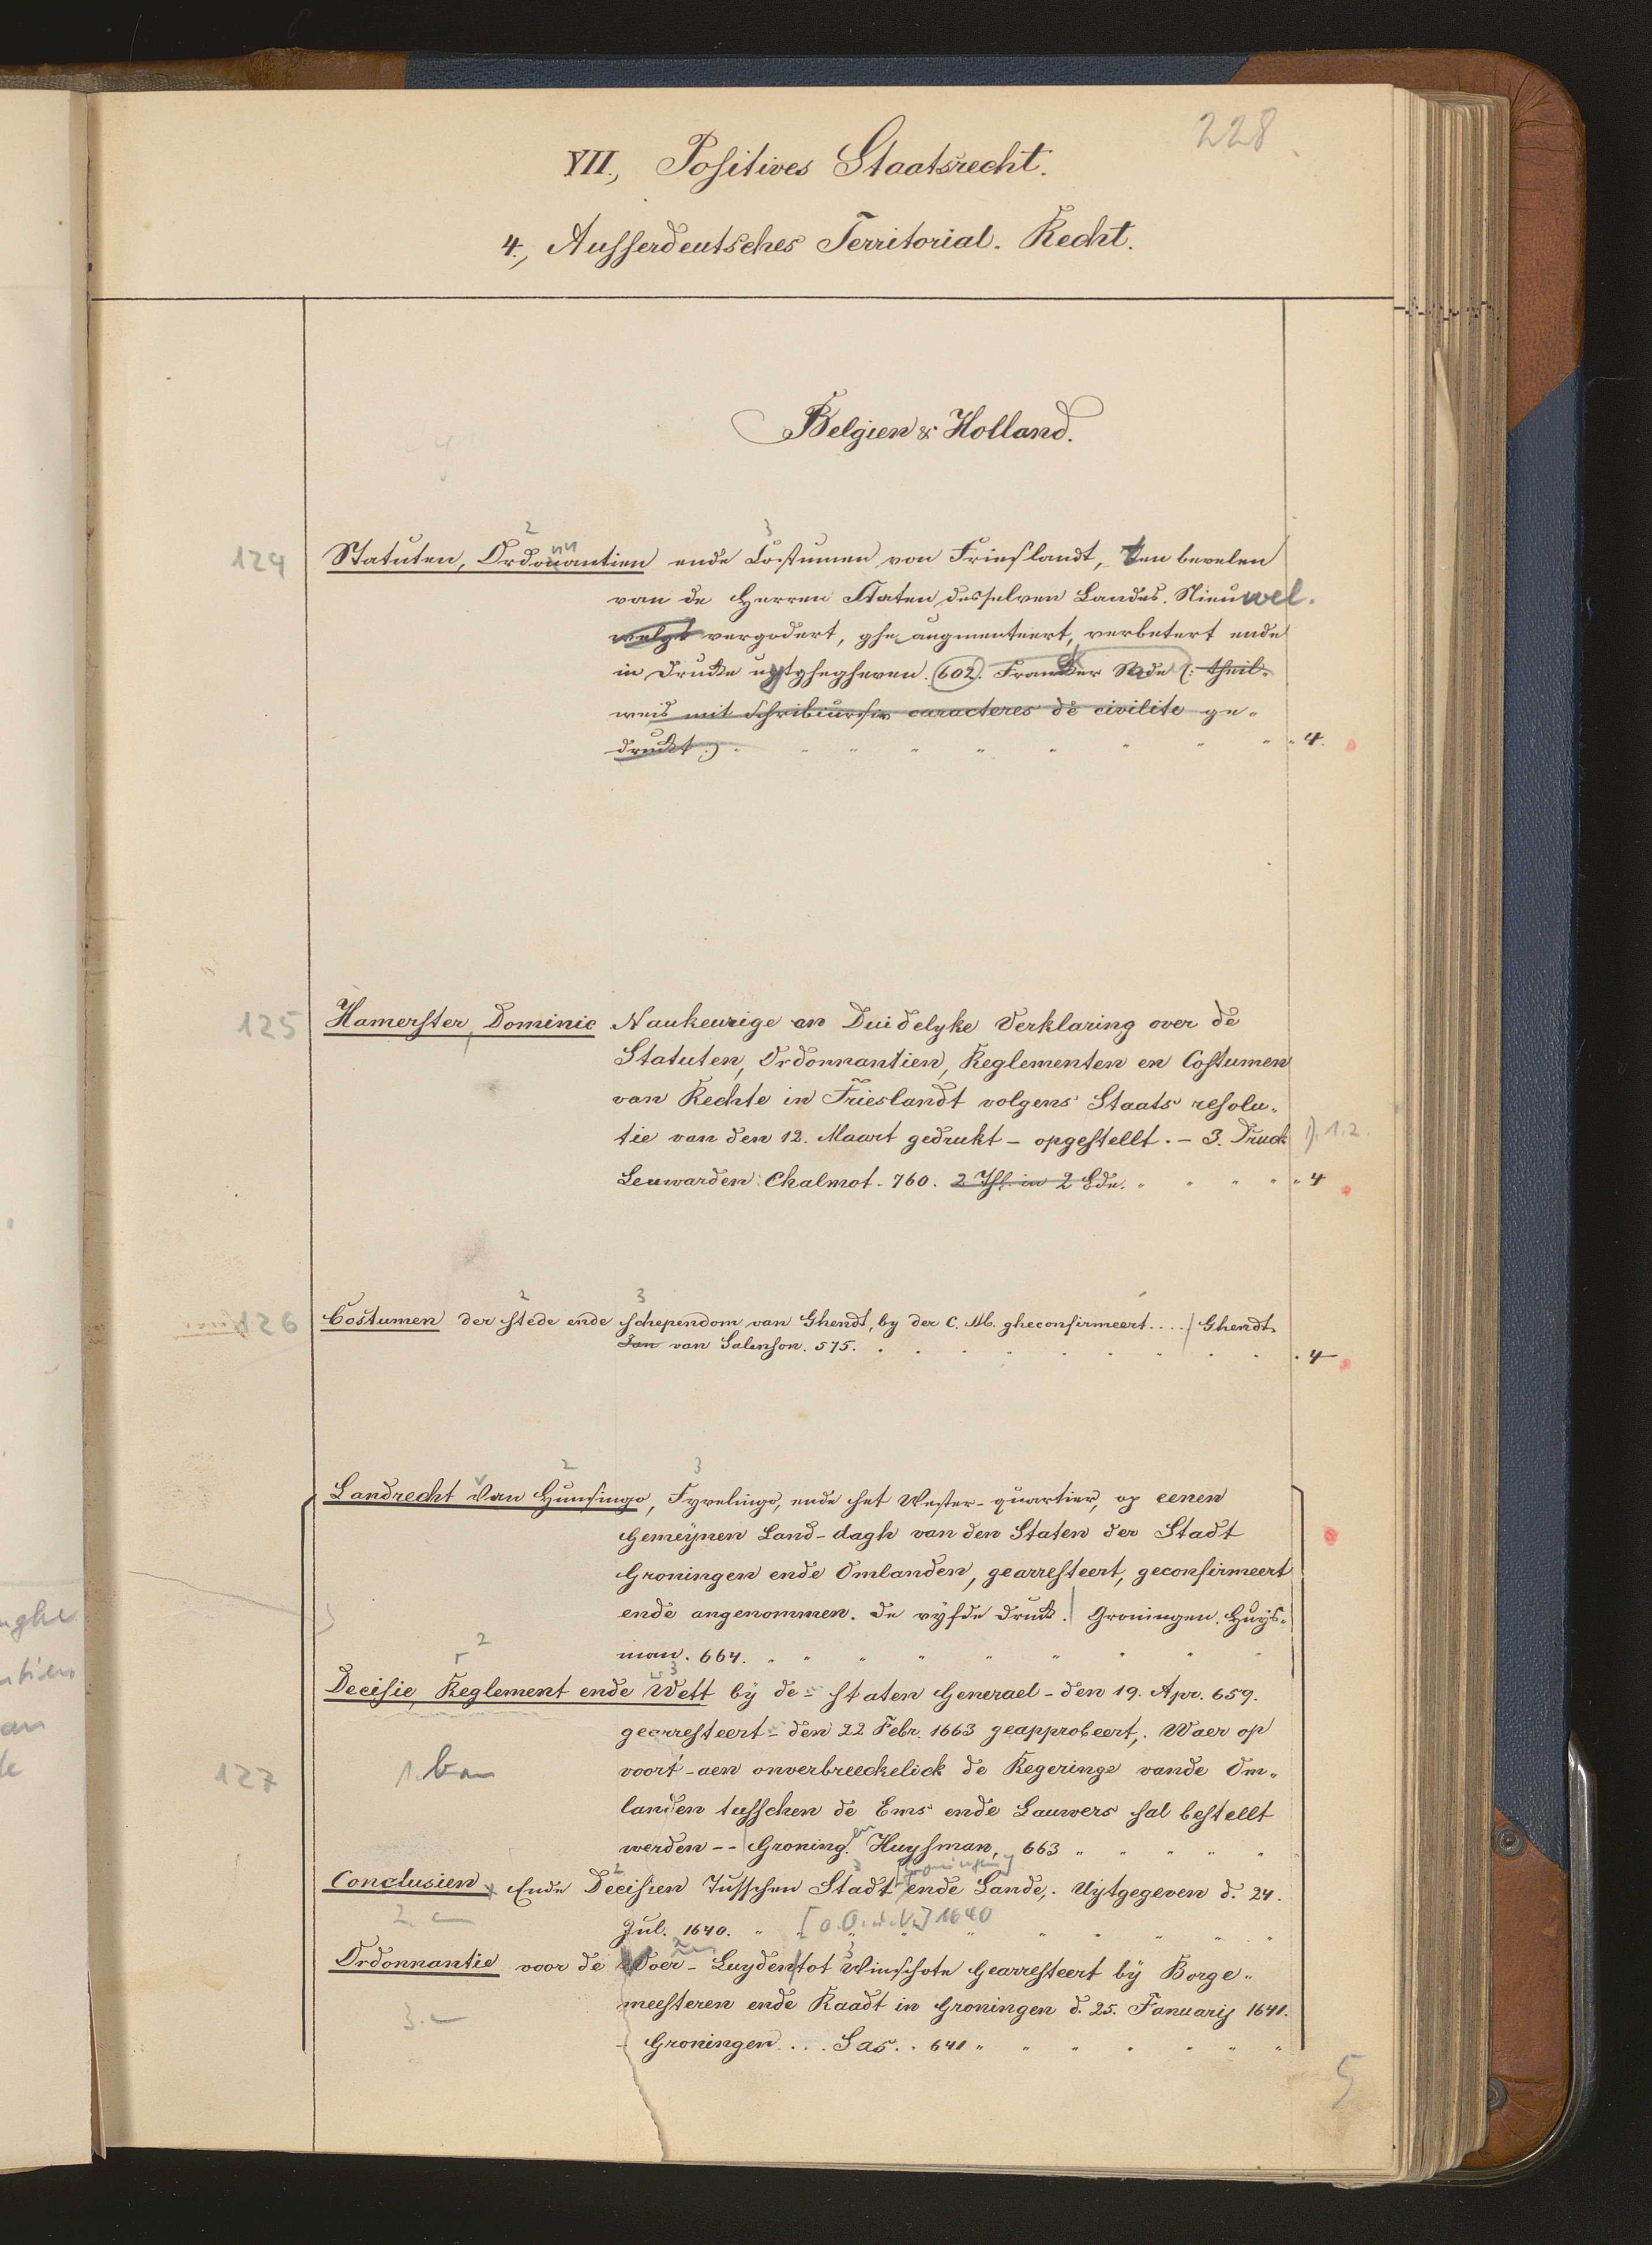 228
VII., Positives Staatsrecht.
4., Ausserdeutsches Territorial-Recht.
Belgien & Holland.
2 3
124 Statuten, Ordonnantien ende Costumen von Frieslandt, ten bevelen
van de Herren Staten desselven Landes. Nieuwel.
welgs vergodert, ghe augmenteert, verbetert ende
in Drucke uytghegheven. (602). Franeker Rade (: theil-
weis mit Schribcursiv caracteres de civilite ge-
druckt :) . 4.
125 Hamerster, Dominic Naukeurige en Duidelyke Verklaring over de
Statuten, Ordonnantien, Reglementen en Costumen
van Rechte in Frieslandt volgens Staats resolu-
tie van den 12. Maart gedrukt - opgestellt. - 3. Druck 1.2.
Leuwarden: Chalmot. 760. 2 Thl. in 2 Bde. 4
2 3
126 Costumen der stede ende schependom van Ghendt, by der C. M. gheconfirmeert .... / Ghendt
Jan van Salenson. 575. 4
2 3
Landrecht Van Hunsingo, Fyvelingo, ende het Wester-quartier, op eenen
Gemeÿnen Land-dagh van den Staten der Stadt
Groningen ende Omlanden, gearresteert, geconfirmeert
ende angenommen. De vÿfde Druk. | Groningen. Huÿs-
man. 664.
2 3
Decisie, Reglement ende Wett bÿ de - staten Generael - den 19. Apr. 659.
gearresteert - den 22 Febr. 1663 geapprobeert,. Waer op
127 voort-aen onverbreeckelick de Regeringe vande Om-
landen tusschen de Ems ende Lauwers sal bestellt
werden -- Groning.en Huysman, 663
Conclusien Ende Decisien Tusschen Stadt [Groningen] ende Lande,. Uÿtgegeven d. 24.
2. Jul. 1640. [o.O.u.V.] 1640
Ordonnantie voor de Voer-Luyden tot Winschote Gearresteert bÿ Borge-
meesteren ende Raadt in Groningen d. 25. Januarij 1641.
3. Groningen ... Sas .. 641
5